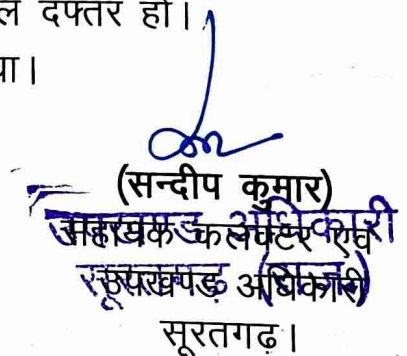 ल दफ्तर हो।
या।
(सन्दीप कुमार)
सहायक कलक्टर एवं
उपखण्ड अधिकारी
उपखण्ड अधिकारी
सूरतगढ़ (राज.)
सूरतगढ़।